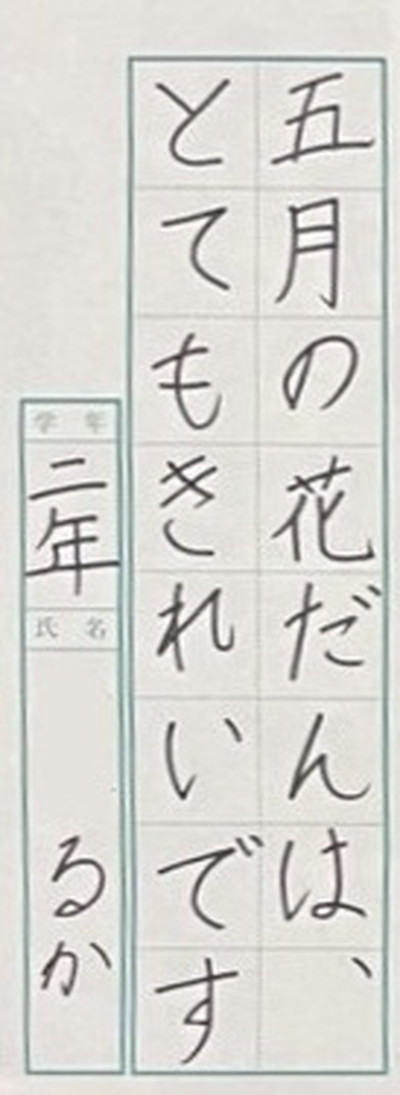 五月の花だんは、
とてもきれいです
学年
二年
氏名
るか